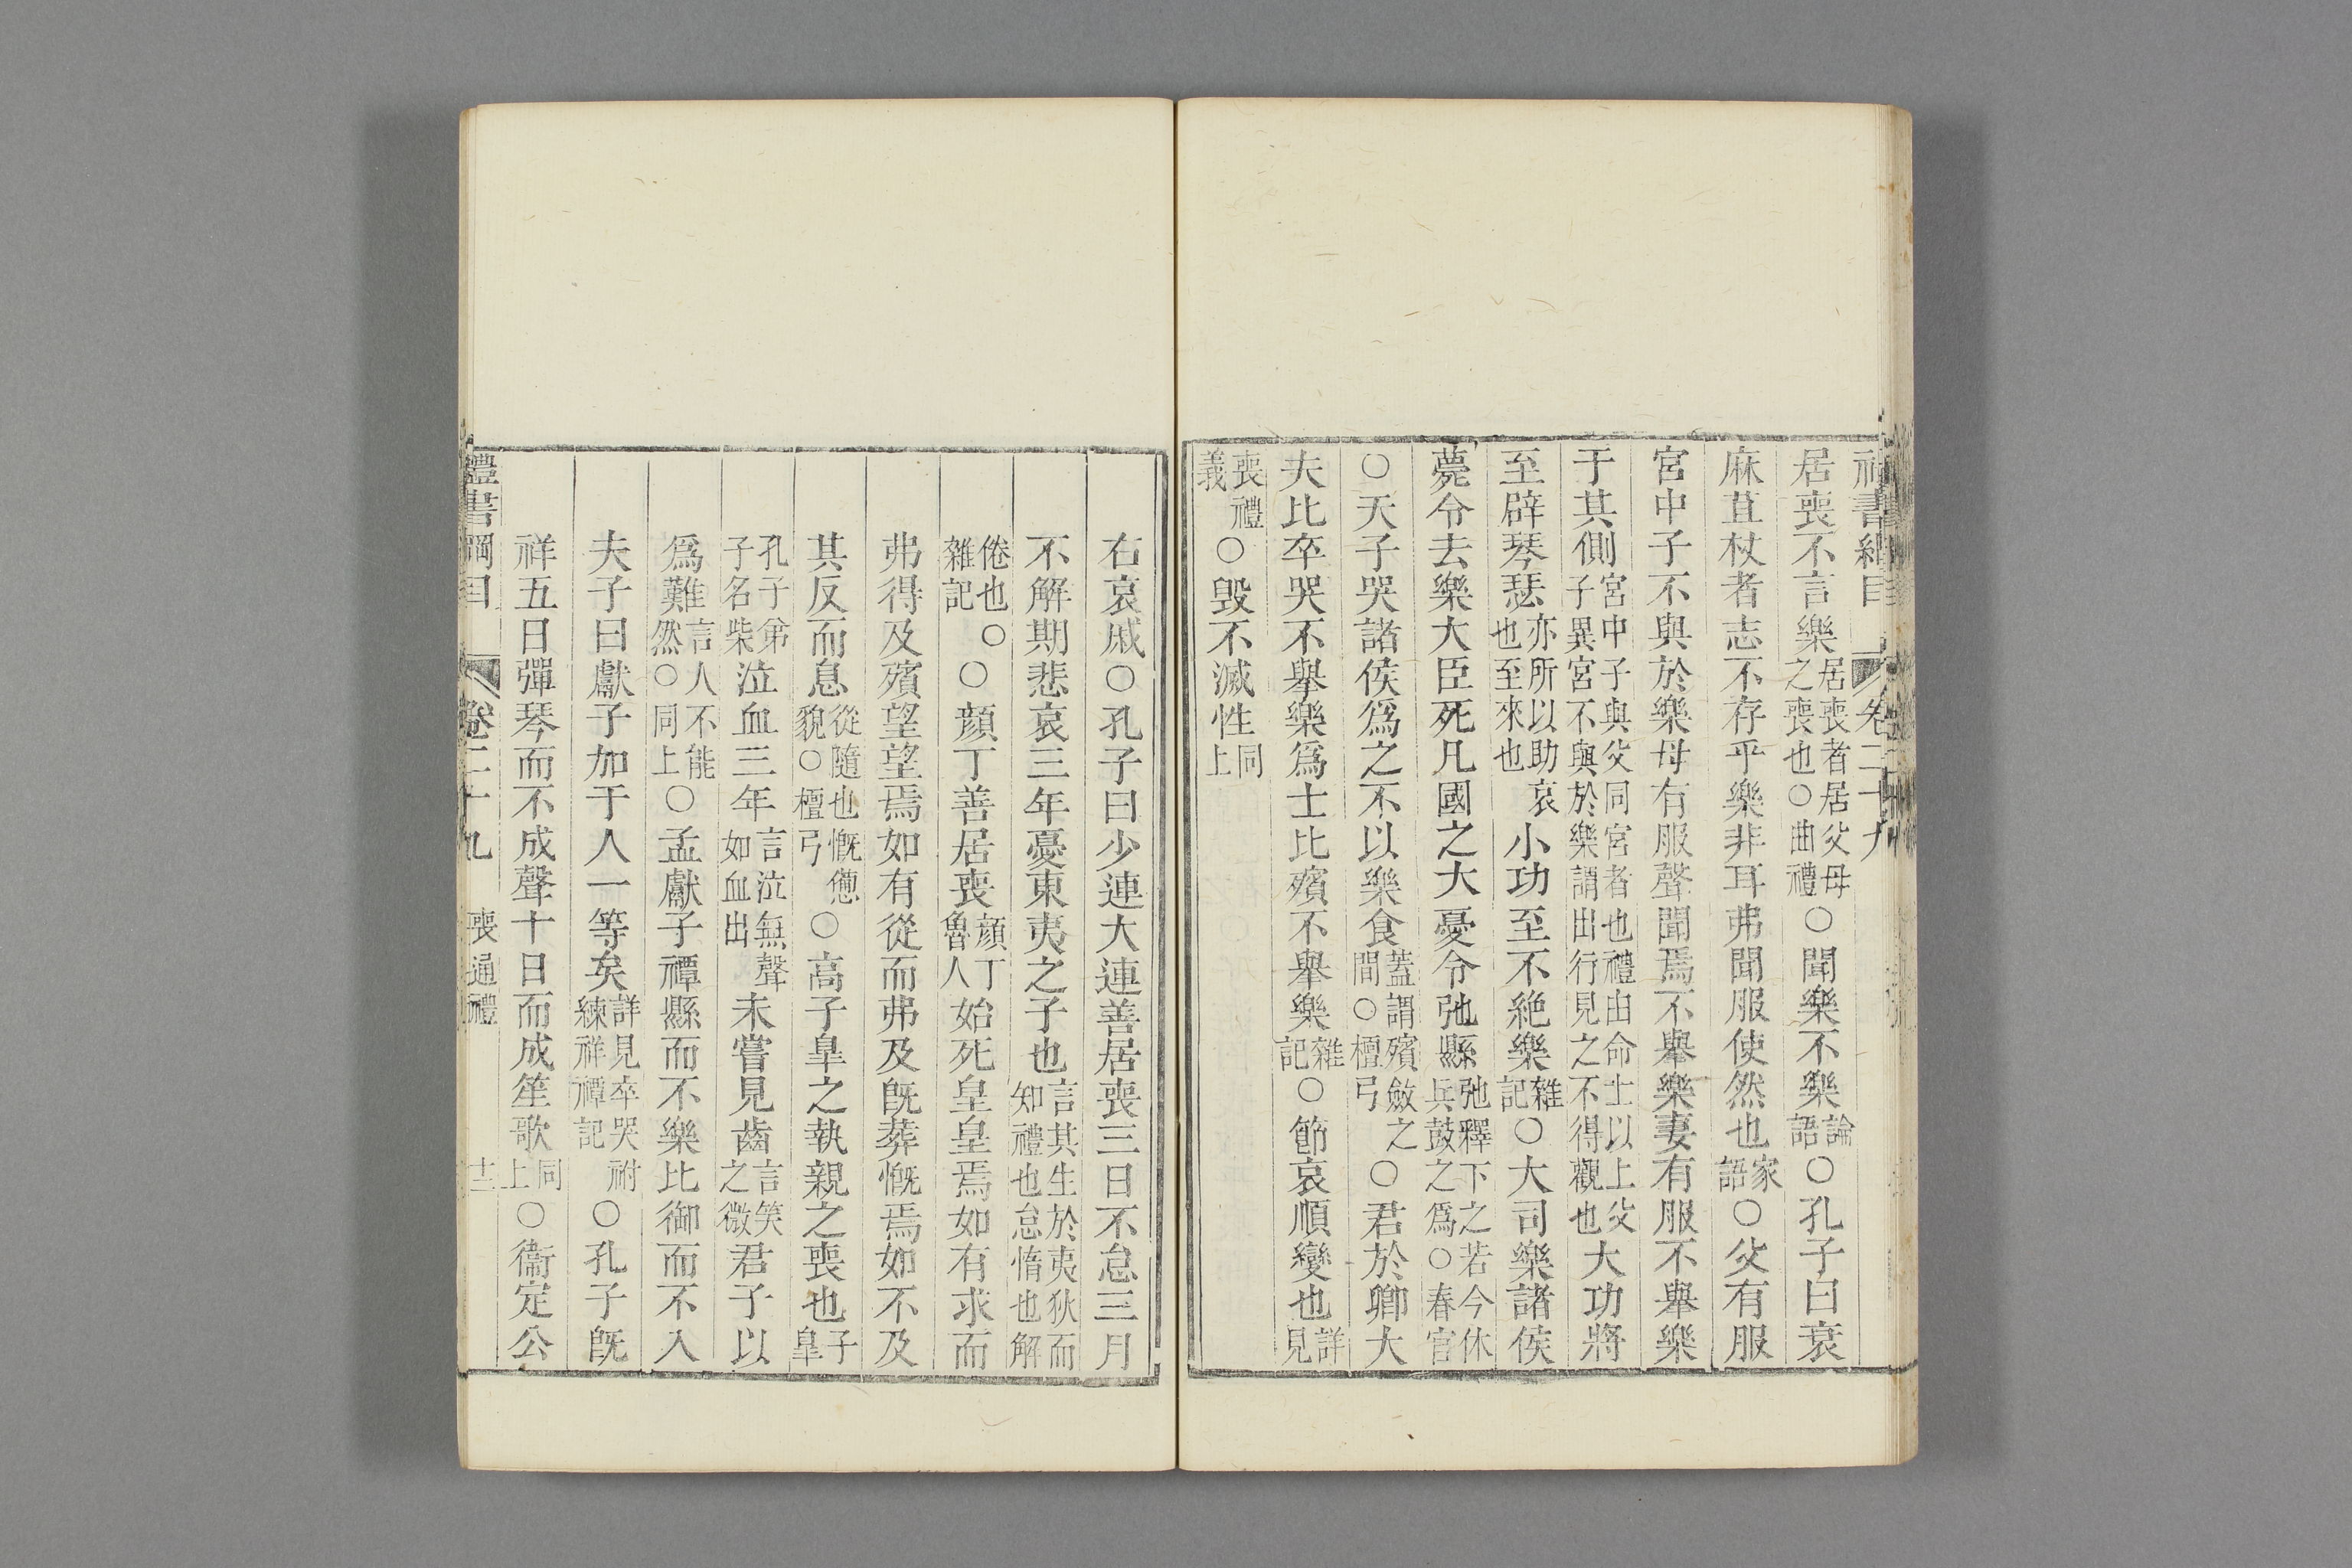 禮書綱目 卷二十九
居喪不言樂居喪者居父母之喪也○曲禮○聞樂不樂論語○孔子曰衰
麻苴杖者志不存乎樂非耳弗聞服使然也家語○父有服
宮中子不與於樂母有服聲聞焉不舉樂妻有服不舉樂
于其側宮中子與父同宮者也禮由命士以上父子異宮不與於樂謂出行見之不得觀也大功將
至辟琴瑟亦所以助哀也至來也小功至不絶樂雜記○大司樂諸侯
薨令去樂大臣死凡國之大憂令弛縣弛釋下之若今休兵鼓之爲○春官
○天子哭諸侯爲之不以樂食蓋謂殯斂之間○檀弓○君於卿大
夫比卒哭不舉樂爲士比殯不舉樂雜記○節哀順變也詳見
喪禮義○毀不滅性同上
右哀戚○孔子曰少連大連善居喪三日不怠三月
不解期悲哀三年憂東夷之子也言其生於夷狄而知禮也怠惰也解
倦也○雜記○顏丁善居喪顏丁魯人始死皇皇焉如有求而
弗得及殯望望焉如有從而弗及旣葬慨焉如不及
其反而息從隨也慨憊貌○檀弓○高子皐之執親之喪也子皐
孔子弟子名柴泣血三年言泣無聲如血出未嘗見齒言笑之微君子以
爲難言人不能然○同上○孟獻子禫縣而不樂比御而不入
夫子曰獻子加于人一等矣詳見卒哭祔練祥禫記○孔子旣
祥五日彈琴而不成聲十日而成笙歌同上○衞定公
禮書綱目 卷二十九 喪通禮 十二